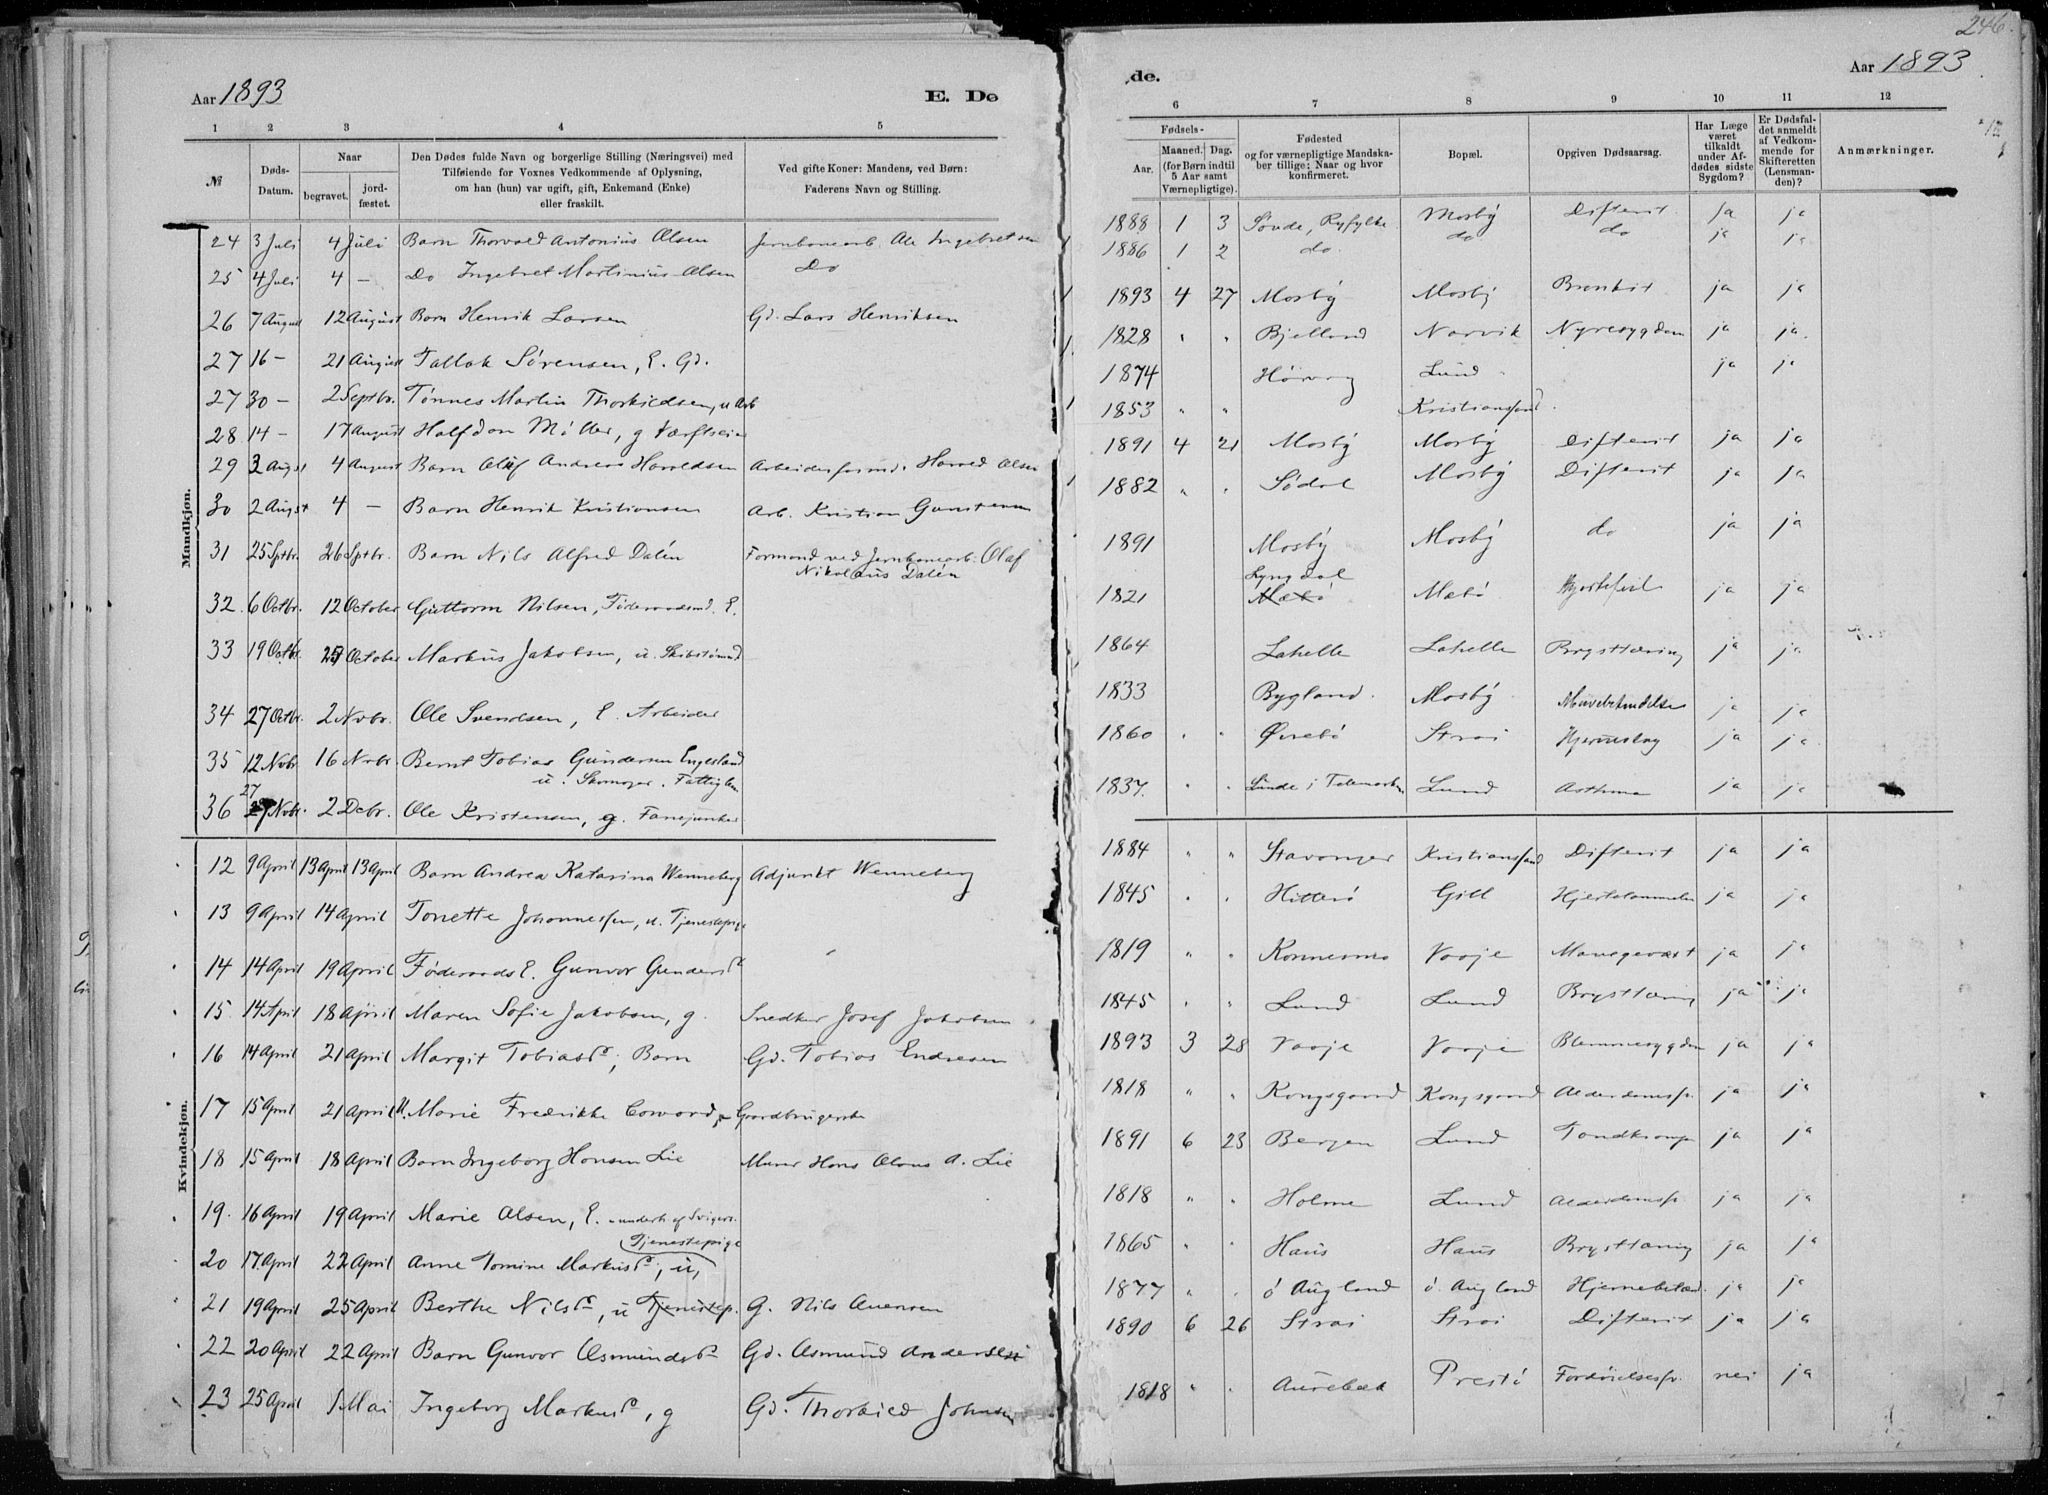 246.
Aar 1893
E. Dø
de.
Aar 1893
1 2 3 4 5
6 7 8 9 10 11 12
№ Døds-Datum. Naar begravet. jord-fæstet. Den Dødes fulde Navn og borgerlige Stilling (Næringsvei) med Tilføiende for Voxnes Vedkommende af Oplysning, om han (hun) var ugift, gift, Enkemand (Enke) eller fraskilt. Ved gifte Koner: Mandens, ved Børn: Faderens Navn og Stilling.
Fødsels- Aar. Maaned. Dag. (for Børn indtil 5 Aar samt Værnepligtige). Fødested og for værnepligtige Mandskaber tillige: Naar og hvor konfirmeret. Bopæl. Opgiven Dødsaarsag. Har Læge været tilkaldt under Afdødes sidste Sygdom? Er Dødsfaldet anmeldt af Vedkommende for Skifteretten (Lensmanden)? Anmærkninger.
Mandkjøn.
24 3 Juli 4 Juli Barn Thorvald Antonius Olsen Jernbanearb. Ole Ingebretsen 1888 1 3 Sønde, Ryfylke Mosby Difterit ja ja
25 4 Juli 4 - Do Ingebret Martinius Olsen Do 1886 1 2 do. do do ja ja
26 7 August 12 August Barn Henrik Larsen Gd. Lars Henriksen 1893 4 27 Mosby Mosby Bronkit ja ja
27 16 - 21 August Tallak Sørensen, E. Gd. 1828 " " Bjelland Narvik Nyresygdom ja ja.
27 30 - 2 Septbr. Tønnes Martin Thorkildsen, u Arb 1874 Høivog Lund ja ja
28 14 - 17 August Halfdan Møller, g Værftseier 1853 " " Kristianssand.
29 2 Augst 4 August Barn Oluf Andreas Haraldsen Arbeidsformd. Harald Olsen 1891 4 21 Mosby Mosby Difterit ja ja
30 2 Augst 4 - Barn Henrik Kristiansen Arb. Kristian Gunstensen 1882 " " Sødal Mosby Difterit ja ja
31 25 Sptbr. 26 Sptbr. Barn Nils Alfred Dalén Formand ved Jernbanearb. Olaf Nikolaus Dalén 1891 Mosby Mosby do ja ja
32. 6 Octbr. 12 October Guttorm Nilsen, Føderaadsmd. E. 1821 Lyngdal Mæbø Mæbø Hjertefeil ja ja
33 19 Octbr. 25 October Markus Jakobsen, u. Skibstømmd 1864 Lahelle Lahelle Brysttæring ja ja
34 27 Octbr. 2 Novbr. Ole Svendsen, E. Arbeider 1833 Bygland. Mosby Mavebetændelse ja ja
35 12 Novbr 16 Novbr. Bernt Tobias Gundersen Engesland u. Skomager. Fattiglem 1860 " " Øvrebø Strai Hjerneslag ja ja
36 27 Novbr. 2 Debr. Ole Kristensen, g. Fanejunker 1837. " " Lunde i Telemarken Lund Asthma ja ja
Kvindekjøn.
12 9 April 13 April 13 April Barn Andrea Katarina Wenneberg Adjunkt Wenneberg 1884 " " Stavanger Kristianssand Difterit ja ja
13 9 April 14 April Tonette Johannessen, u. Tjenestepige 1845 " " Hitterø Gill Hjertelammelse ja ja
14 14 April 19 April Føderaads E. Gunvor Gundersd. 1819 " " Konnesmo Vaaje Mavegevæxt ja ja
15. 14 April 18 April Maren Sofie Jakobsen, g. Snedker Josef Jakobsen 1845 " " Lund Lund Brysttæring ja ja
16 14 April 21 April Margit Tobiasd., Barn Gd. Tobias Endresen 1893 3 28 Vaaje Vaaje Blemmesygdom ja ja
17 15 April 21 April Marie Fredrikke Coward, Gaardbrugerske 1818 " " Kongsgaard Kongsgaard Alderdomssv. ja ja
18 15 April 18 April Barn Ingeborg Hansen Lie Murer Hans Olaus A. Lie 1891 6 23 Bergen Lund Tandkrampe ja ja
19. 16 April 19 April Marie Olsen, E. underh. af Svigers. 1818 " " Holme Lund Alderdomssv. ja ja
20 17 April 22 April Anne Tomine Markusd., u, Tjenestepige 1865 " " Haus Haus Brysttæring ja ja
21 19 April 25 April Berthe Nilsd., u Tjenestep. G. Nils Auensen 1877 " " ö Augland ö. Augland Hjernebetænd. ja ja
22 20 April 22 April Barn Gunvor Osmundsd. Gd. Osmund Andersen 1890 6 26 Strai Strai Difterit ja ja
23 25 April 1 Mai Ingeborg Markusd., g Gd. Thorkild Johnsen 1818 " " Aurebæk Prestø Fordøielsessv. nei ja